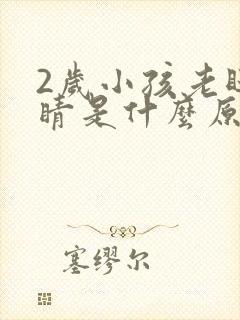 2歲小孩老眨
睛是什麼原
塞缪尔